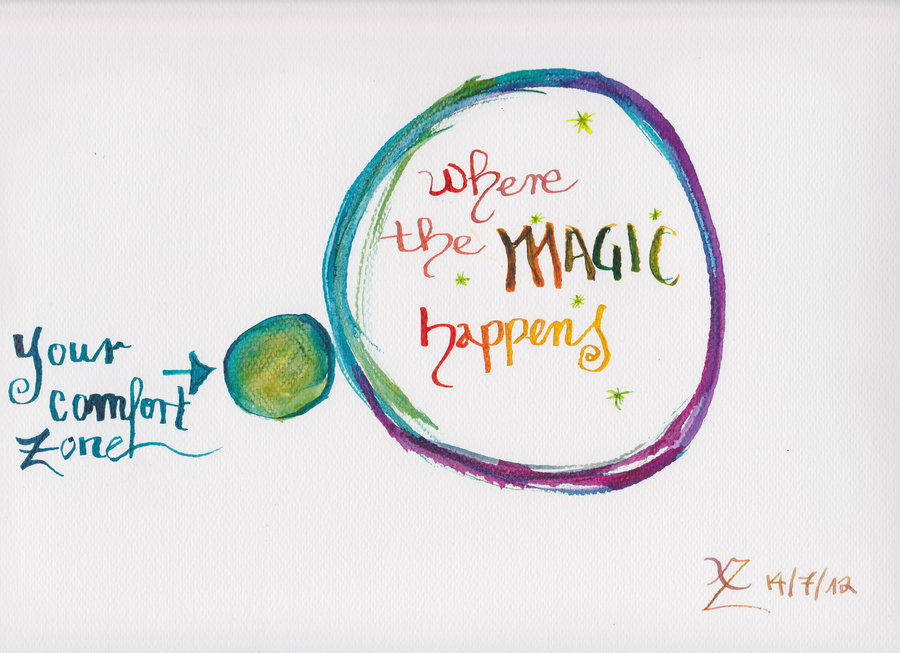 Your
comfort
Zone
where
the MAGIC
happens
XZ 14/7/12